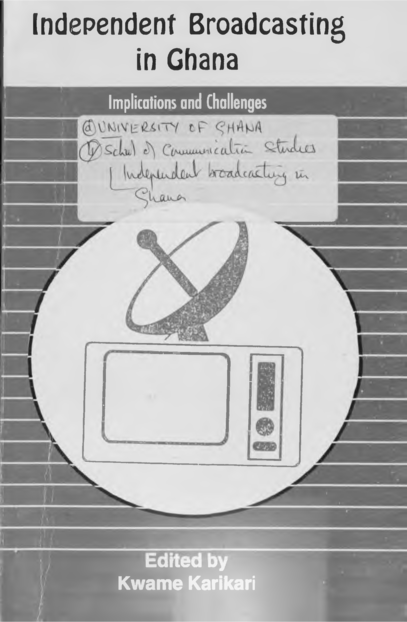 Independent Broadcasting
in Ghana
Implications and Challenges
ⓐ UNIVERSITY OF GHANA
ⓑ School of Communication Studies
Independent broadcasting in
Ghana
Edited by
Kwame Karikari